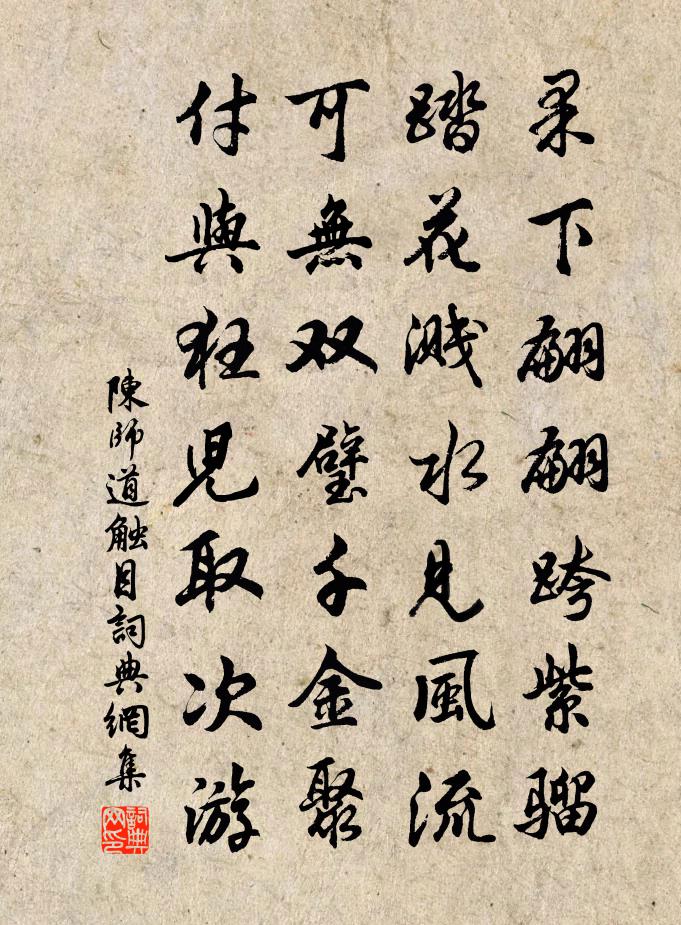 果下翩翩跨紫骝
踏花溅水見風流
可無双璧千金聚
付與狂兒取次游
陳師道触目詞典網集
詞典网印